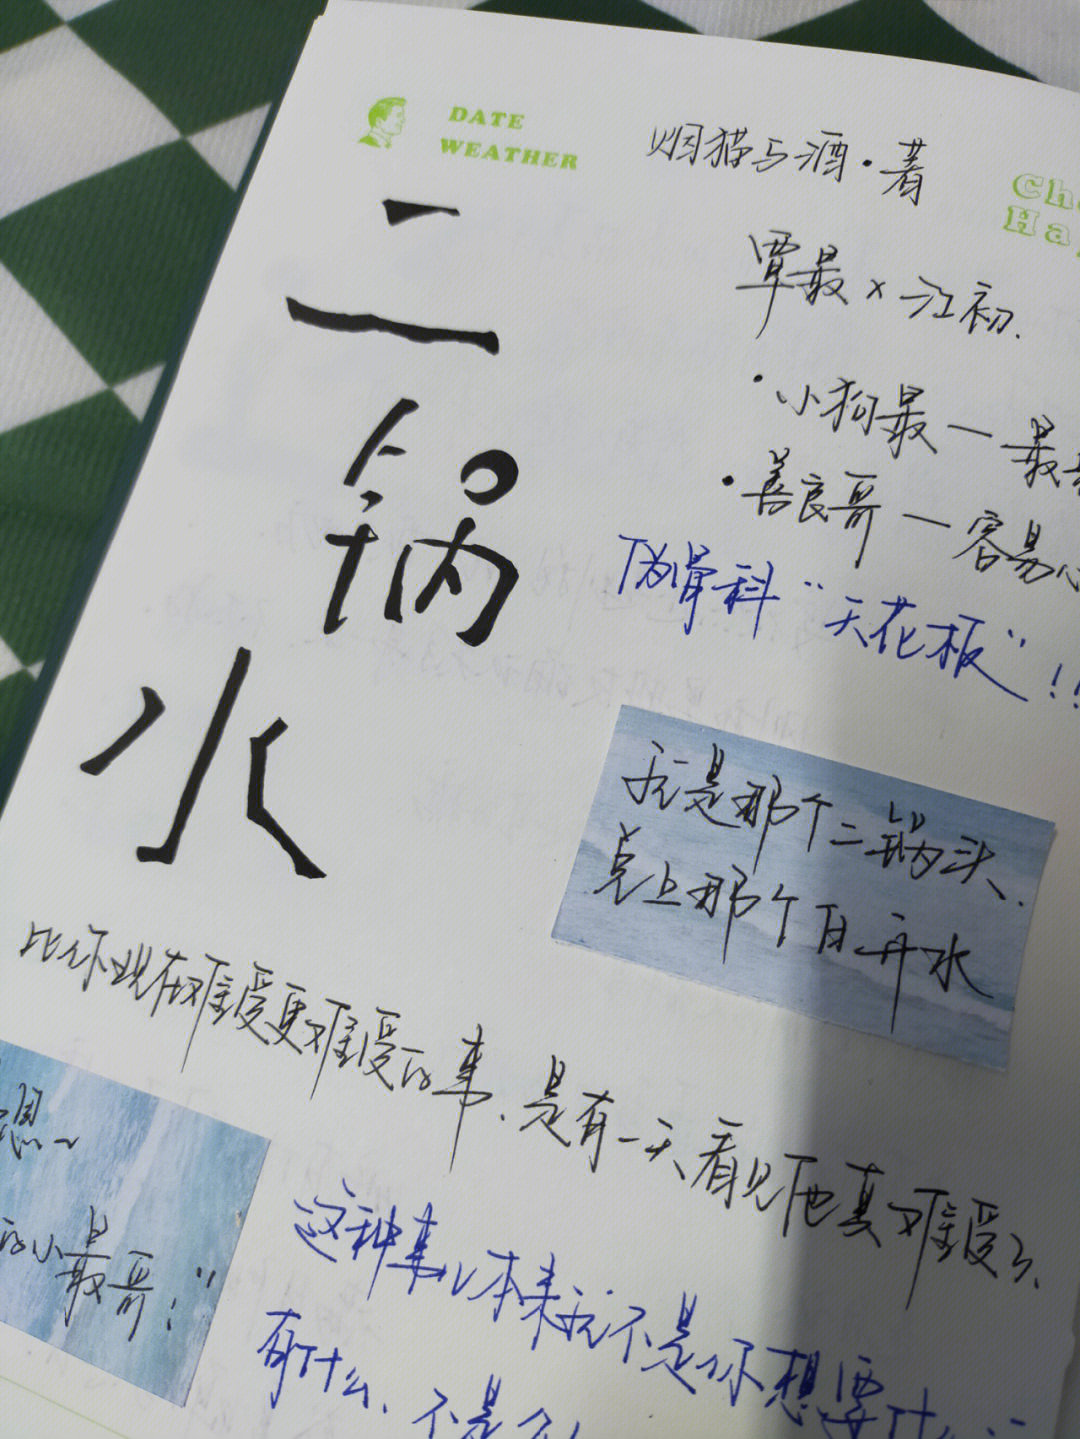 DATE
WEATHER
烟猫与酒·著
Ch
Ha
二
锅
水
覃最×江初.
·小狗最一最
·善良哥一容易
伪骨科“天花板”!!
我是那个二锅头.
兑上那个白开水
比你现在难受更难受的事.是有一天看见他真难受了.
想~
的小最哥."
这种事儿本来就不是你想要什
有什么、不是